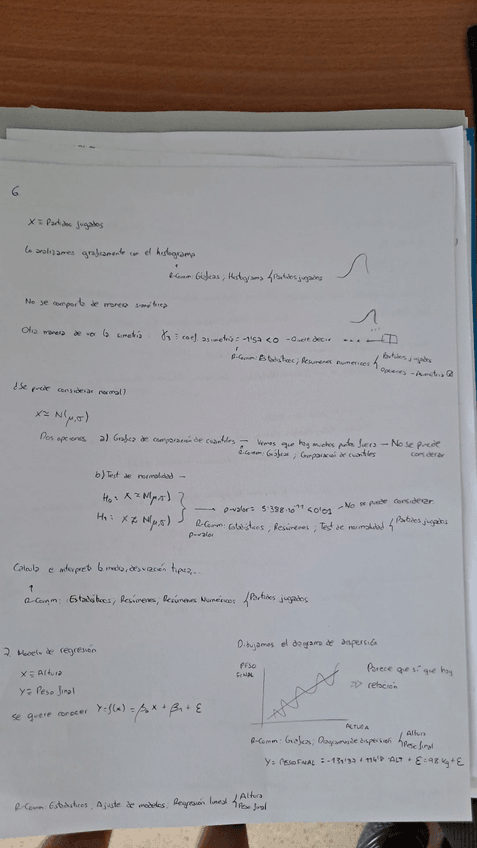 6
X ≡ Partidos jugados
Lo analizamos graficamente con el histograma
↑
R-Comm: Gráficas; Histograma { Partidos jugados
No se comporta de manera simétrica
Otra manera de ver la simetría: γ1 = coef. asimetría = -1'52 < 0 - Quere decir
R-Comm: Estadísticos; Resúmenes numéricos { Partidos jugados
Opciones - Asimetría
¿Se puede considerar normal?
X ≈ N(μ,σ)
Dos opciones a) Gráfica de comparación de cuantiles — Vemos que hay muchos puntos fuera — No se puede considerar
R-Comm: Gráficas; Comparación de cuantiles
b) Test de normalidad —
H0: X ≈ N(μ,σ)
H1: X ≉ N(μ,σ)
→ p-valor = 5'388·10⁻¹¹ < 0'01 → No se puede considerar
R-Comm: Estadísticos; Resúmenes; Test de normalidad { Partidos jugados
p-valor
Calcula e interpreta la media, desviación típica,...
↑
R-Comm: Estadísticos, Resúmenes, Resúmenes Numéricos { Partidos jugados
7. Modelo de regresión
X = Altura
Y = Peso final
se quiere conocer Y=f(x) = β0 X + β1 + ε
Dibujamos el diagrama de dispersión
PESO
FINAL
ALTURA
Parece que sí que hay
⇒ relación
R-Comm: Gráficas; Diagrama de dispersión { Altura
Peso final
Y = PESO FINAL =
R-Comm: Estadísticos, Ajuste de modelos, Regresión lineal { Altura
Peso final